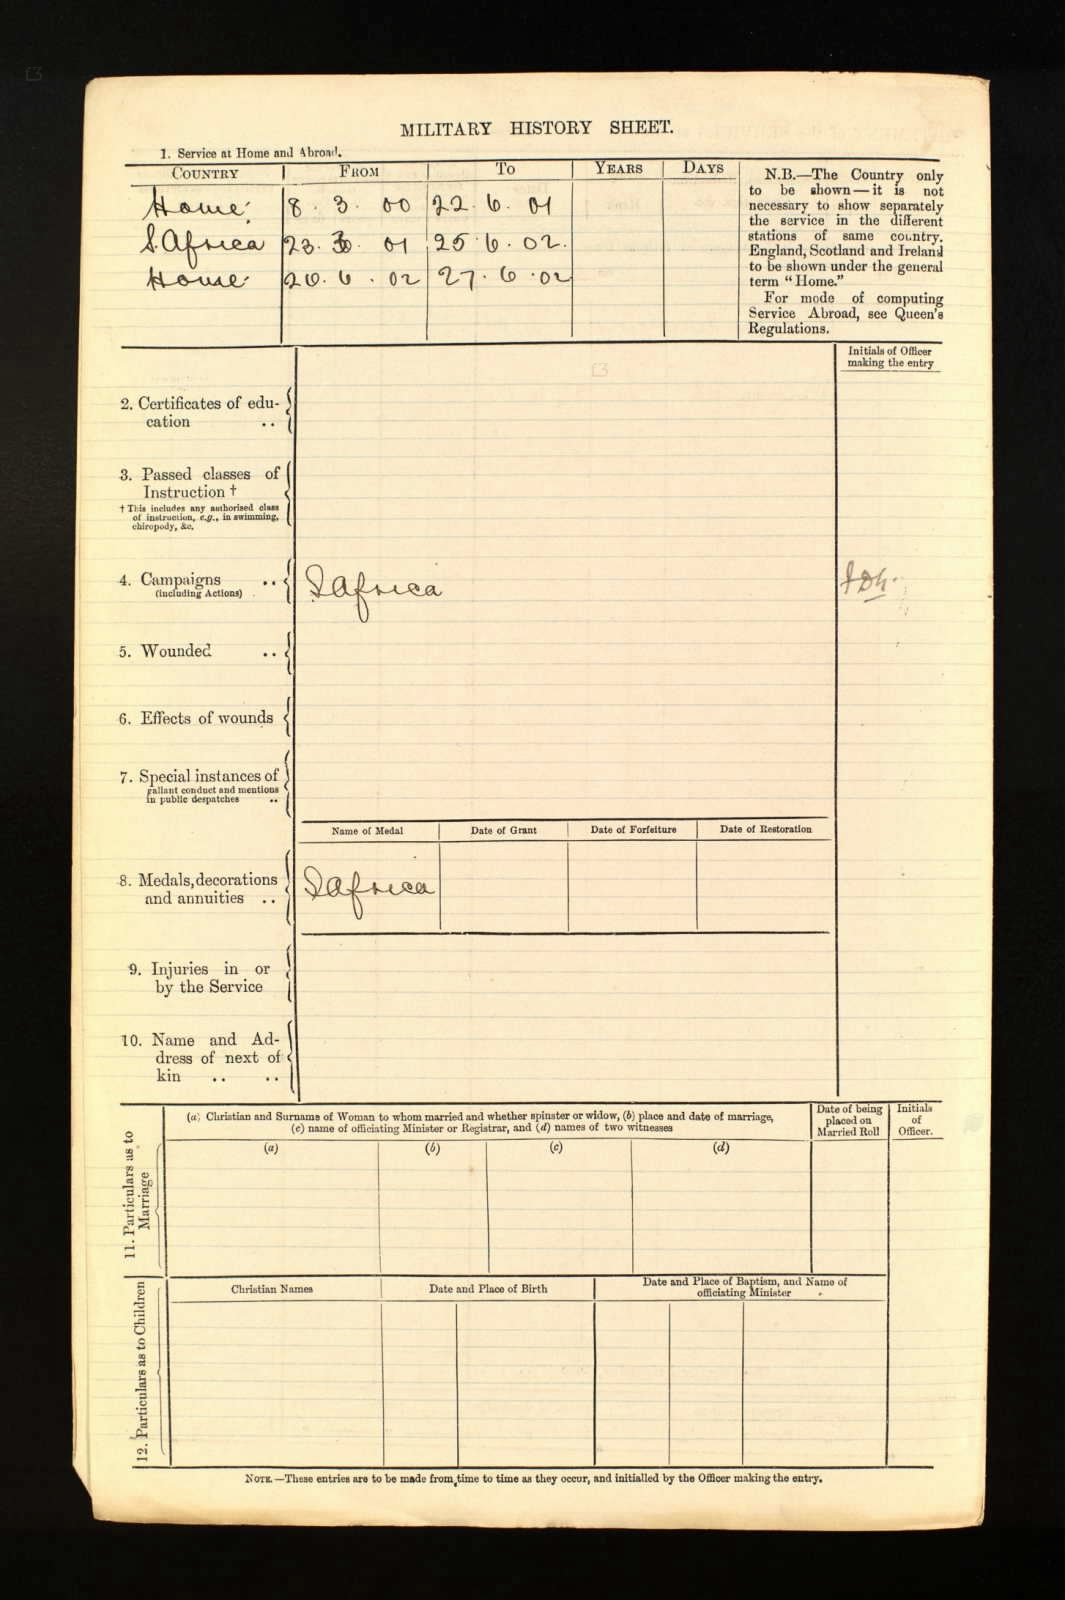 MILITARY HISTORY SHEET.
1. Service at Home and Abroad.
COUNTRY FROM TO YEARS DAYS
Home 8 . 3 . 00 22 . 6 . 01
S. Africa 23 . 01 25 . 6 . 02.
Home 26 . 6 . 02 27 . 6 . 02
N.B.—The Country only
to be shown—it is not
necessary to show separately
the service in the different
stations of same country.
England, Scotland and Ireland
to be shown under the general
term "Home."
For mode of computing
Service Abroad, see Queen's
Regulations.
Initials of Officer
making the entry
2. Certificates of edu-
cation ..
3. Passed classes of
Instruction †
† This includes any authorised class
of instruction, e.g., in swimming,
chiropody, &c.
4. Campaigns .. S Africa
(including Actions)
5. Wounded ..
6. Effects of wounds
7. Special instances of
gallant conduct and mentions
in public despatches ..
Name of Medal Date of Grant Date of Forfeiture Date of Restoration
8. Medals, decorations
and annuities ..
S Africa
9. Injuries in or
by the Service
10. Name and Ad-
dress of next of
kin .. ..
11. Particulars as to
Marriage
(a) Christian and Surname of Woman to whom married and whether spinster or widow, (b) place and date of marriage,
(c) name of officiating Minister or Registrar, and (d) names of two witnesses
Date of being
placed on
Married Roll
Initials
of
Officer.
(a) (b) (c) (d)
12. Particulars as to Children
Christian Names Date and Place of Birth
Date and Place of Baptism, and Name of
officiating Minister
NOTE.—These entries are to be made from time to time as they occur, and initialled by the Officer making the entry.